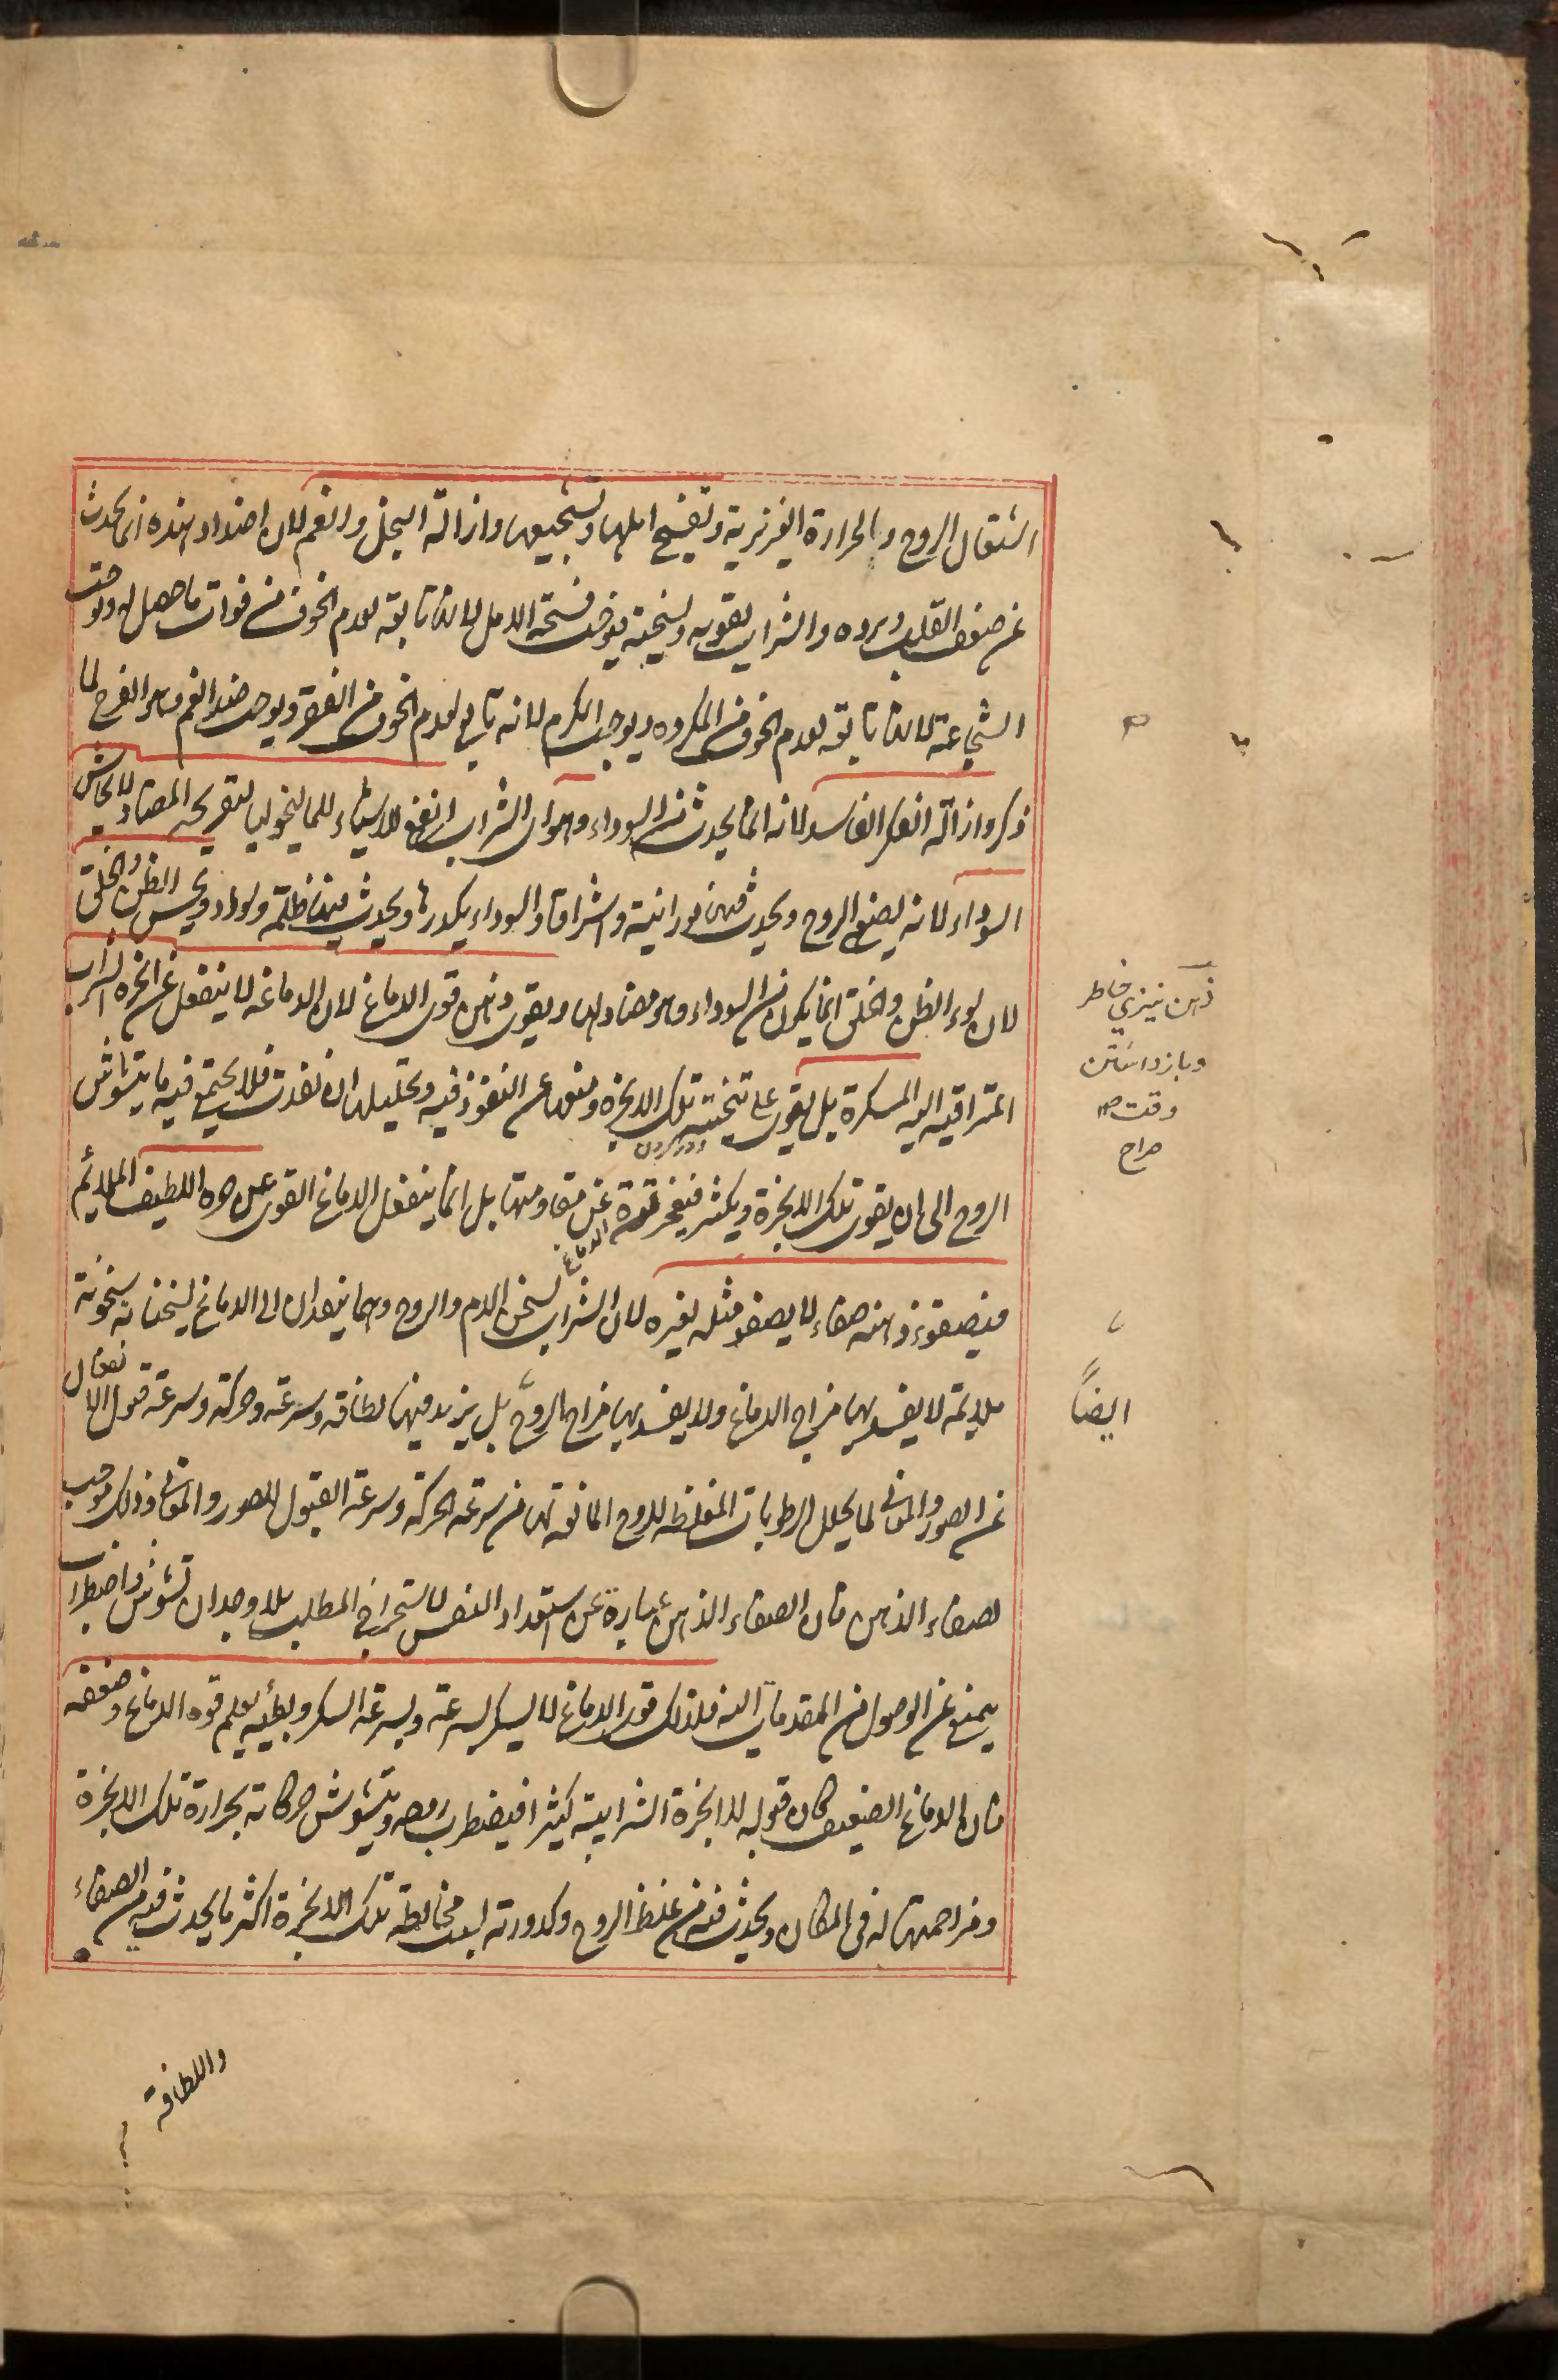 اشتعال الروح والحرارة الغريزية وتفسيح املها وتشجيعها وازالة البخل والغم لان اضداد هذه انما يحدث
عن ضعف القلب وبرده والشراب يقويه ويسخنه يوجب فسحة الامل لانها تابعة لعدم الخوف من فوات ما حصل له ويوجب
الشجاعة لانها تابعة لعدم الخوف من المكروه ويوجب الكرم لانه تابع لعدم الخوف من الفقر ويوجب ضد الغم وهو الفرح لما
ذكر وازالة الفكر الفاسد لانه انما يحدث من السوداء وهو اى الشراب انفع الاشياء للماليخوليا لتفريحه المضاد لايحاش
السوداء لانه يصنع الروح ويحدث فيها نورانية واشراقا والسوداء يكدرها ويحدث فيها ظلمة وسوادا ويحسن الظن والخلق
لان سوء الظن والخلق انما يكون من السوداء وهو مضاد لها ويقوى ذهن قوى الدماغ لان الدماغه لا ينفعل عن ابخرة الشراب
المتراقيه اليه المسكرة بل يقوى على تنحيته تلك الابخره ومنعها عن النفوذ فيه وتحليلها ان نفذت فلا يجتمع فيه ما يتشوش
الروح الى ان يقوى تلك الابخرة ويكثر فيعجز قوة الدماغ عن مقاومتها بل انما ينفعل الدماغ القوى عن حره اللطيف الملائم
فيصفو ذهنه صفاء لا يصفو مثله لغيره لان الشراب يسخن الدم والروح وهما ينفذان الى الدماغ ليسخنانه سخونة
ملايمة لا يفسد بها مزاج الدماغ ولا يفسد بها مزاج الروح بل يزيد فيها لطافة وسرعة وحركة وسرعة قبول الانفعال
عن الصور والمعانى لما يحلل الرطوبات المغلظه للروح المانعة لها من سرعة الحركة وسرعة القبول للصور والمعانى وذلك موجب
لصفاء الذهن فان الصفاء الذهن عبارة عن استعداد النفس لاستخراج المطلب بلا وجدان تشوش واضطراب
يمنع عن الوصول من المقدمات اليه فلذلك قوى الدماغ لا يسكر بسرعة وبسرعة السكر وبطئه يعلم قوه الدماغ وضعفه
فان الدماغ الضعيف كان قبوله للابخرة الشرابية كثيرا فيضطرب روحه ويتشوش حركاته بحرارة تلك الابخرة
ومزاحمتها له فى المكان ويحدث فيه من غلظ الروح وكدورته لبعد مخالطة تلك الابخرة اكثر ما يحدث فيه من الصفاء
واللطافة
دور كردن
ذهن تيزي خاطر
وبازداشتن
وقت
صراح
ايضاً